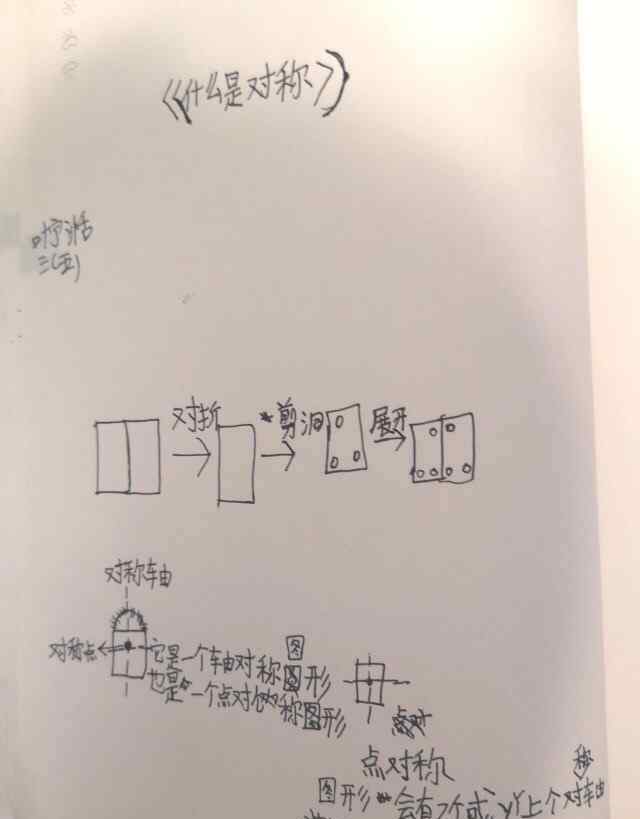 《什么是对称》
三(五)
对折
剪洞
展开
对称轴
对称点
它是一个轴对称图形
也是一个点对称图形
点对称
图形会有2个或以上个对称轴